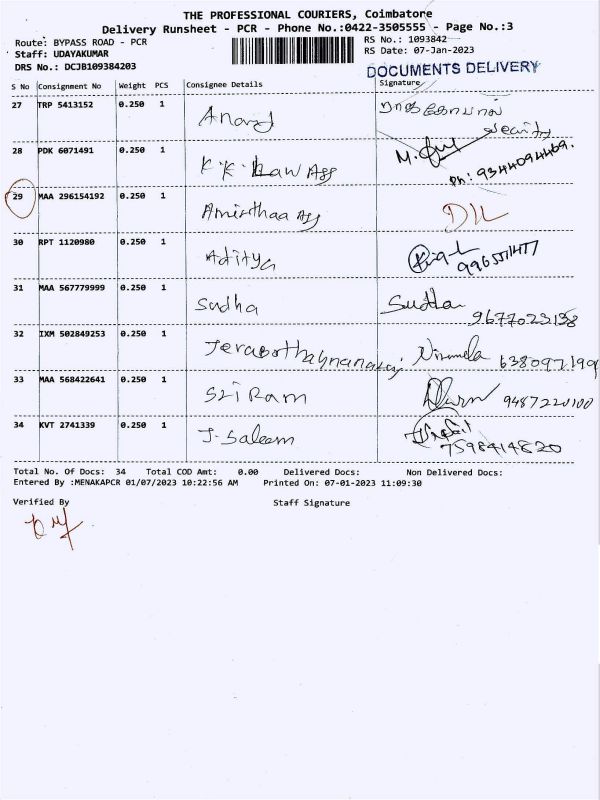 THE PROFESSIONAL COURIERS, Coimbatore
Delivery Runsheet - PCR - Phone No.:0422-3505555 - Page No.:3
Route: BYPASS ROAD - PCR
RS No.: 1093842
Staff: UDAYAKUMAR
RS Date: 07-Jan-2023
DRS No.: DCJB109384203
DOCUMENTS DELIVERY
S No Consignment No Weight PCS Consignee Details Signature
27 TRP 5413152 0.250 1 Anand
Security
28 PDK 6071491 0.250 1 K.K. Law Ass
Ph: 9344094469.
29 MAA 296154192 0.250 1 Amirthaa Ass D/L
30 RPT 1120980 0.250 1 Aditya
31 MAA 567779999 0.250 1 Sudha Sudha
9677023138
32 IXM 502849253 0.250 1 Nirmala 638097219
33 MAA 568422641 0.250 1 Sri Ram 9487220100
34 KVT 2741339 0.250 1 J. Saleem
7598414820
Total No. Of Docs: 34 Total COD Amt: 0.00 Delivered Docs: Non Delivered Docs:
Entered By :MENAKAPCR 01/07/2023 10:22:56 AM Printed On: 07-01-2023 11:09:30
Verified By Staff Signature